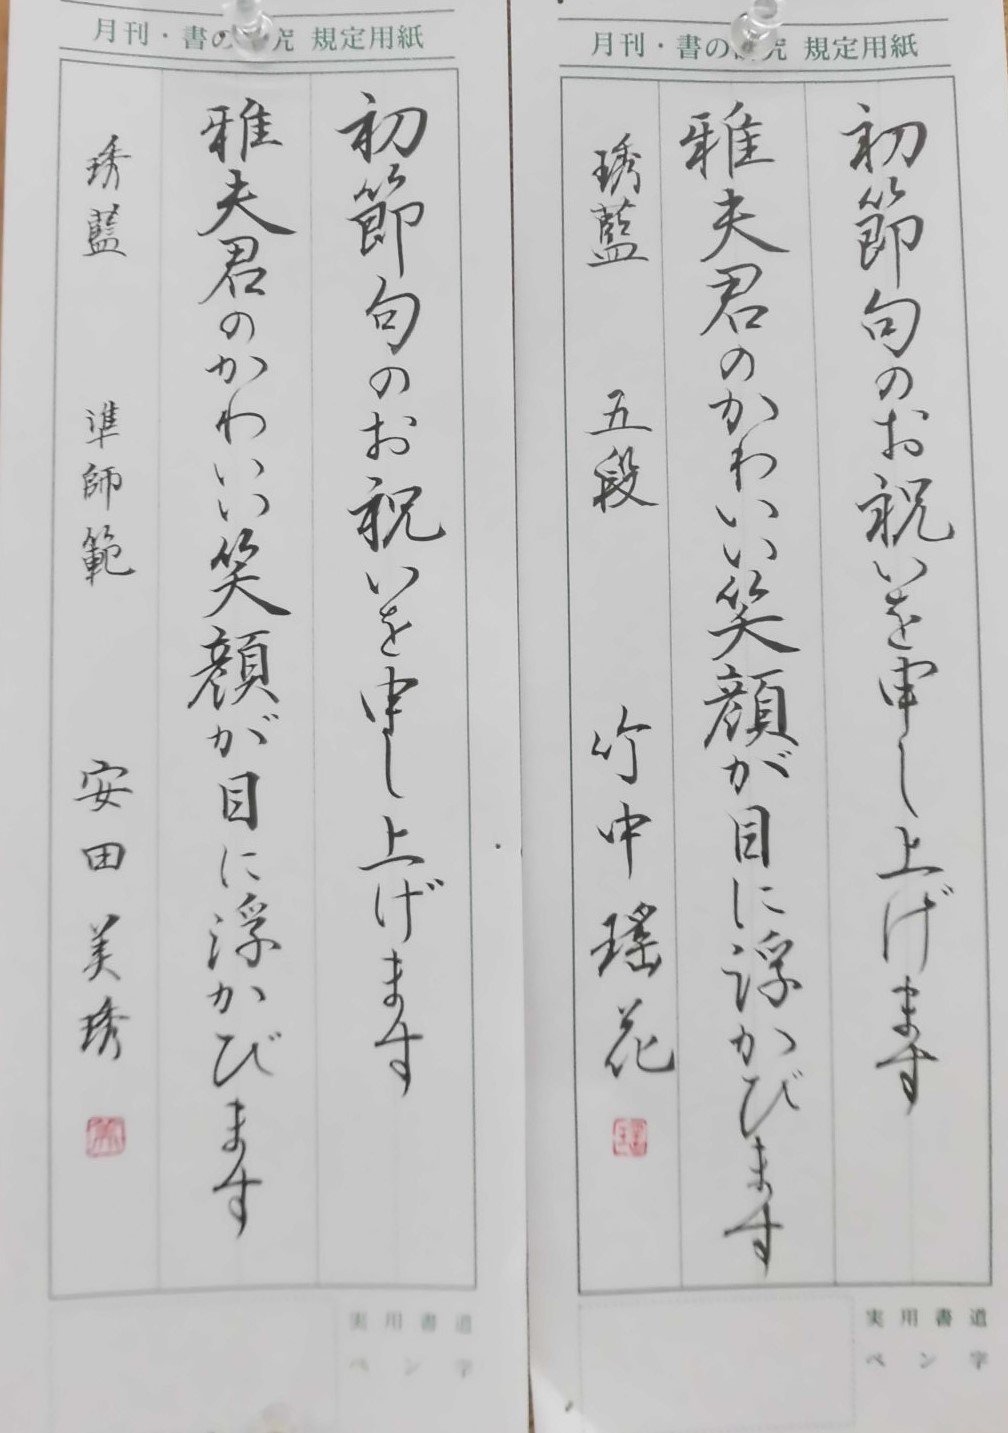 月刊・書の研究 規定用紙
初節句のお祝いを申し上げます
雅夫君のかわいい笑顔が目に浮かびます
琇藍 五段 竹中瑤花
実用書道
ペン字
月刊・書の研究 規定用紙
初節句のお祝いを申し上げます
雅夫君のかわいい笑顔が目に浮かびます
琇藍 準師範 安田美琇
実用書道
ペン字